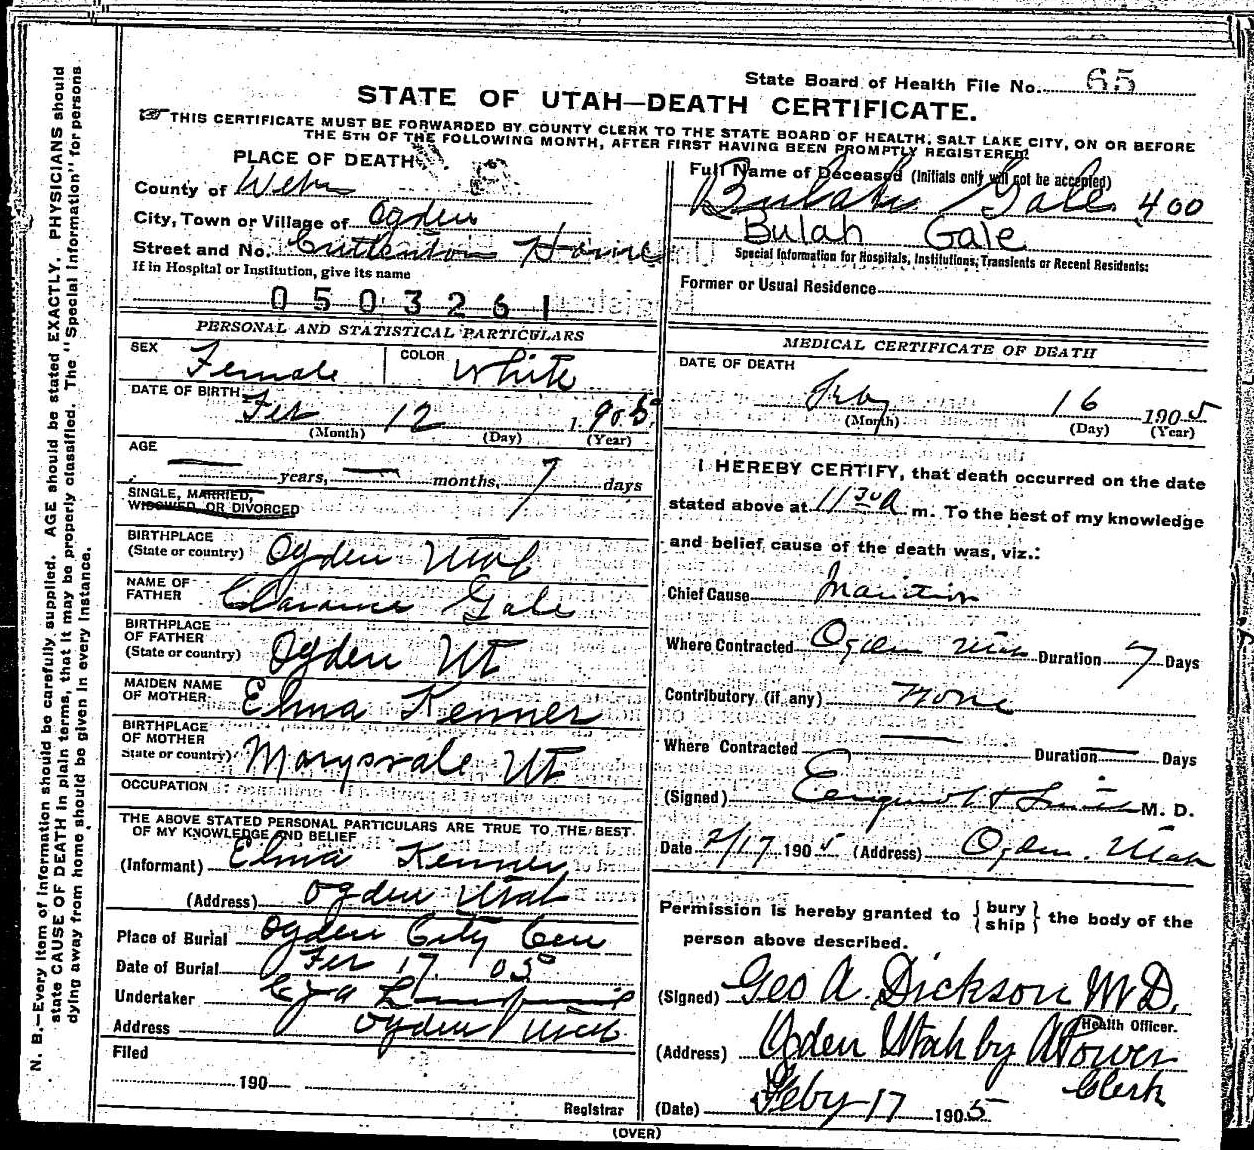 State Board of Health File No. 65
STATE OF UTAH—DEATH CERTIFICATE.
THIS CERTIFICATE MUST BE FORWARDED BY COUNTY CLERK TO THE STATE BOARD OF HEALTH, SALT LAKE CITY, ON OR BEFORE
THE 5TH OF THE FOLLOWING MONTH, AFTER FIRST HAVING BEEN PROMPTLY REGISTERED.
PLACE OF DEATH
County of Weber
City, Town or Village of Ogden
Street and No. Home
If in Hospital or Institution, give its name
0503261
PERSONAL AND STATISTICAL PARTICULARS
SEX Female COLOR White
DATE OF BIRTH Feb 12 1905
(Month) (Day) (Year)
AGE
— years, — months, 7 days
SINGLE, MARRIED,
WIDOWED, OR DIVORCED
BIRTHPLACE
(State or country) Ogden Utah
NAME OF
FATHER Clarence Gale
BIRTHPLACE
OF FATHER
(State or country) Ogden Ut
MAIDEN NAME
OF MOTHER Elma Kenner
BIRTHPLACE
OF MOTHER
State or country) Marysvale Ut
OCCUPATION
THE ABOVE STATED PERSONAL PARTICULARS ARE TRUE TO THE BEST.
OF MY KNOWLEDGE AND BELIEF
(Informant) Elma Kenner
(Address) Ogden Utah
Place of Burial Ogden City Cem
Date of Burial Feb 17 05
Undertaker
Address Ogden Utah
Filed
190
Registrar
Full Name of Deceased (Initials only will not be accepted)
Bulah Gale 400
Bulah Gale
Special Information for Hospitals, Institutions, Transients or Recent Residents:
Former or Usual Residence
MEDICAL CERTIFICATE OF DEATH
DATE OF DEATH
Feby 16 1905
(Month) (Day) (Year)
I HEREBY CERTIFY, that death occurred on the date
stated above at 11 30 A m. To the best of my knowledge
and belief, cause of the death was, viz.:
Chief Cause Inanition
Where Contracted Ogden Utah Duration 7 Days
Contributory (if any) None
Where Contracted — Duration — Days
(Signed) M. D.
Date 2/17 1905 (Address) Ogden. Utah
Permission is hereby granted to { bury
ship } the body of the
person above described.
(Signed) Geo A. Dickson MD.
Health Officer.
(Address) Ogden Utah by A Power
Clerk
(Date) Feby 17 1905
(OVER)
N. B.—Every item of information should be carefully supplied. AGE should be stated EXACTLY. PHYSICIANS should
state CAUSE OF DEATH in plain terms, that it may be properly classified. The "Special Information" for persons
dying away from home should be given in every instance.